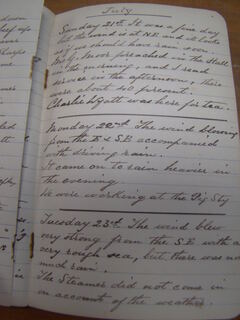 July
Sunday 21st. It was a fine day
but the wind is at N.E. and so looks
as if we should have rain soon.
Mr. Moor preached in the Hall
in the morning, and I read
service in the afternoon, there
were about 40 present.
Charlie Lyatt was here for tea.
Monday 22nd. The wind blowing
from the S.E. accompanied
with driving rain.
It came on to rain heavier in
the evening.
We were working at the Pig Sty
Tuesday 23rd. The wind blew
very strong from the S.E. with a
very rough sea, but there was not
much rain.
The Steamer did not come in
on account of the weather.